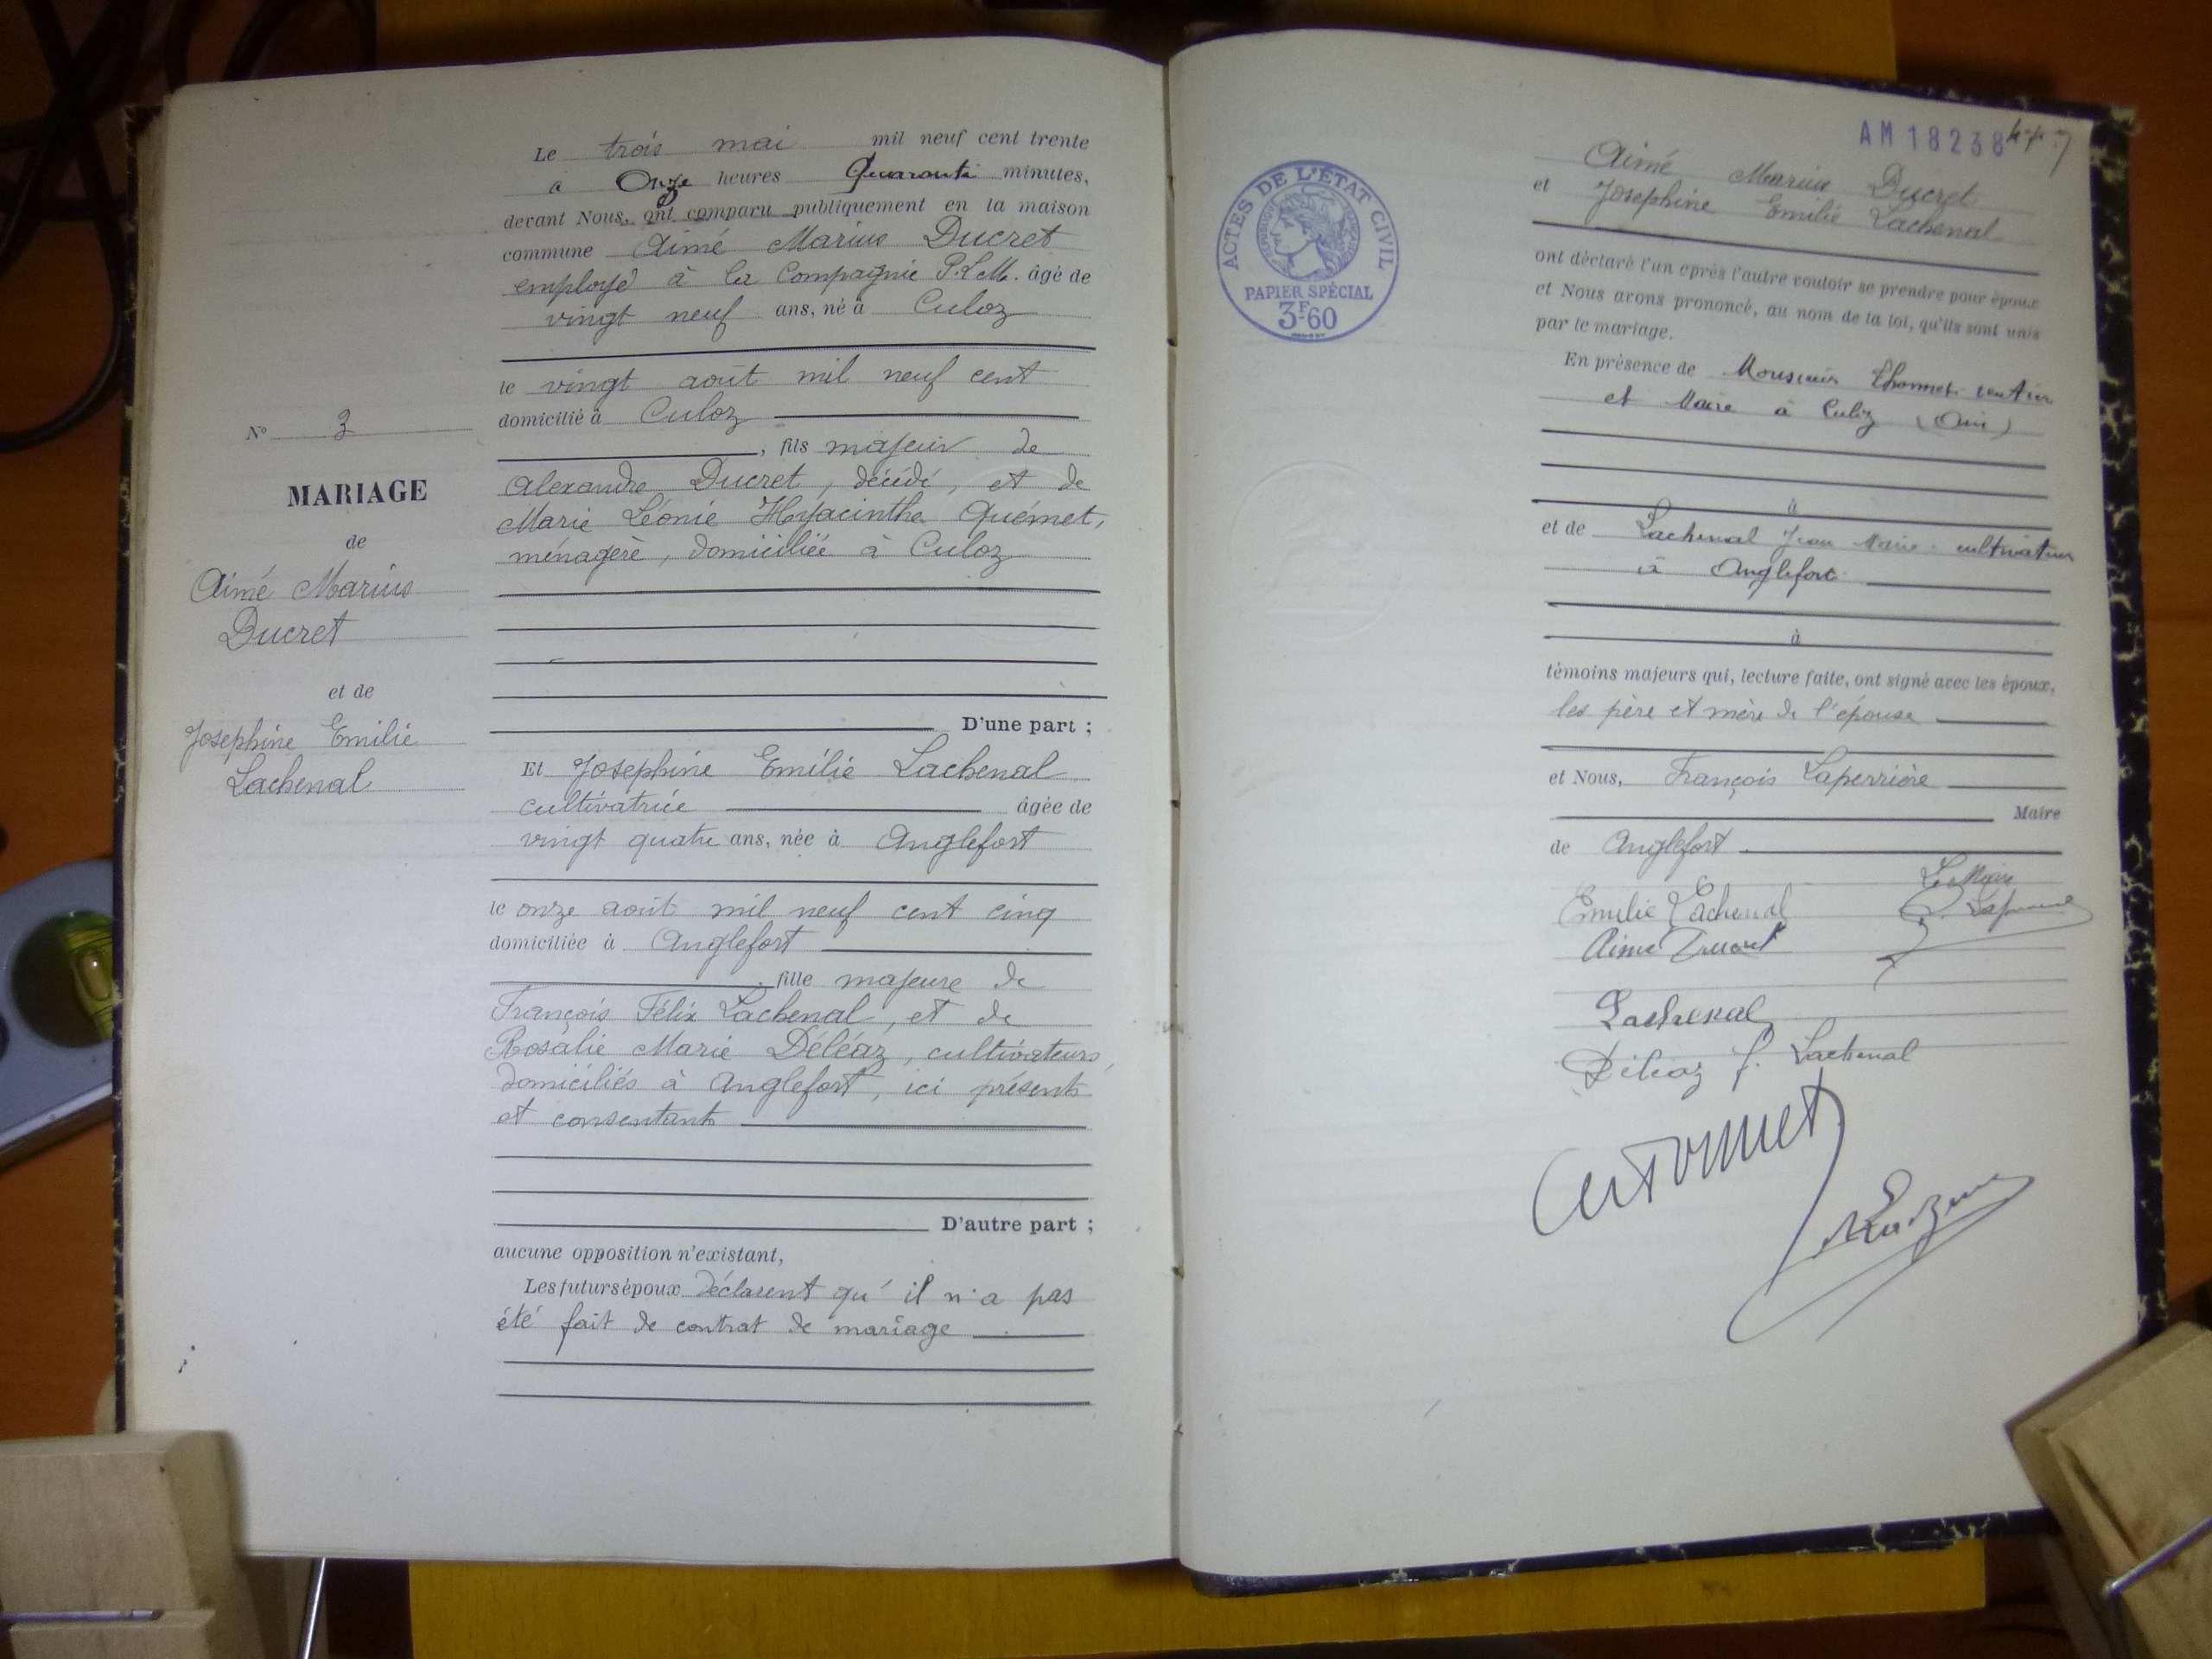 Le trois mai mil neuf cent trente
à Onze heures Quarante minutes,
devant Nous, ont comparu publiquement en la maison
commune Aimé Marius Ducret
employé à la Compagnie P.L.M. âgé de
vingt neuf ans, né à Culoz
le vingt août mil neuf cent
domicilié à Culoz
, fils majeur de
Alexandre Ducret, décédé, et de
Marie Léonie Hyacinthe Quémet,
ménagère, domiciliée à Culoz
D'une part ;
Et Josephine Emilie Lachenal
cultivatrice âgée de
vingt quatre ans, née à Anglefort
le onze août mil neuf cent cinq
domiciliée à Anglefort
, fille majeure de
François Félix Lachenal, et de
Rosalie Marie Déléaz, cultivateurs,
domiciliés à Anglefort, ici présents
et consentants
D'autre part ;
aucune opposition n'existant,
Les futurs époux déclarent qu'il n'a pas
été fait de contrat de mariage
N° 3
MARIAGE
de
Aimé Marius
Ducret
et de
Josephine Emilie
Lachenal
AM 18238
ACTES DE L'ÉTAT CIVIL
RÉPUBLIQUE FRANÇAISE
PAPIER SPÉCIAL
3F60
Aimé Marius Ducret
et Josephine Emilie Lachenal
ont déclaré l'un après l'autre vouloir se prendre pour époux
et Nous avons prononcé, au nom de la loi, qu'ils sont unis
par le mariage.
En présence de Monsieur rentier
et Maire à Culoz (Ain)
à
et de Lachenal Jean Marie cultivateur
à Anglefort
à
témoins majeurs qui, lecture faite, ont signé avec les époux,
les père et mère de l'épouse
et Nous, François Laperrière
Maire
de Anglefort
Le Maire
Emilie Lachenal
Aimé Ducret
Lachenal
Déléaz f. Lachenal